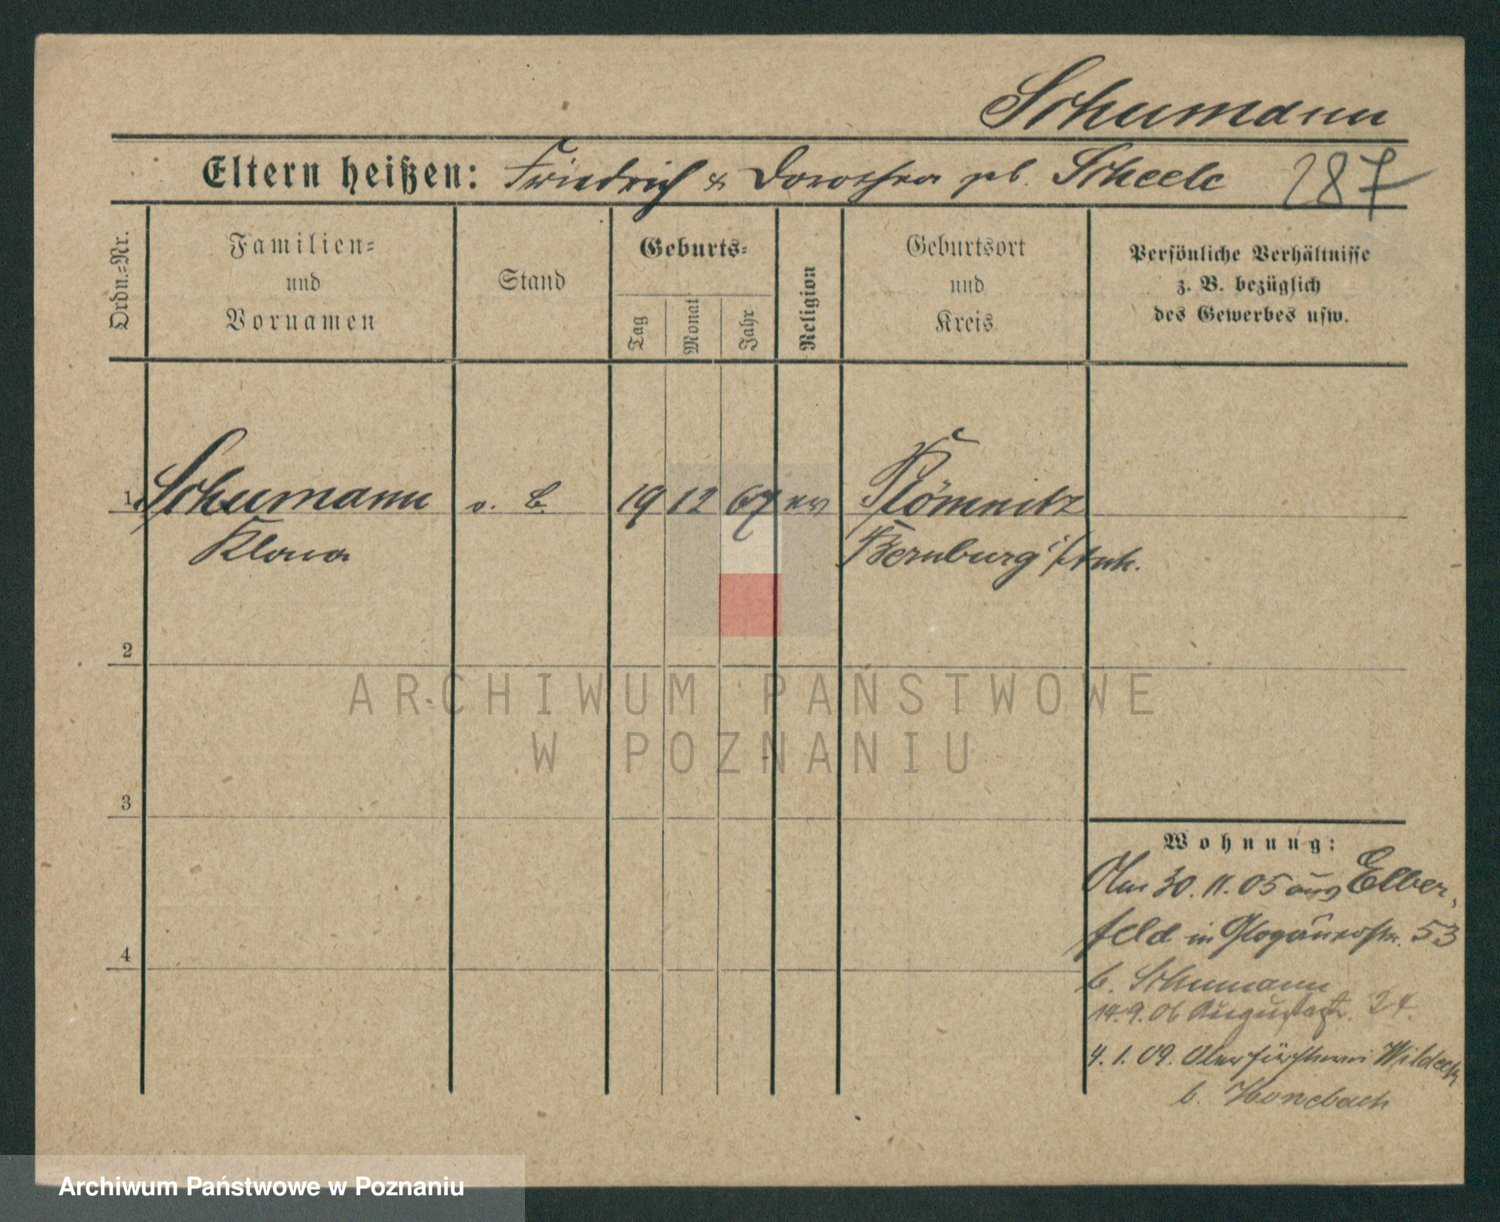 Schumann
Eltern heißen: Friedrich & Dorothea geb. Scheele 287
Ordn.=Nr.
Familien=
und
Vornamen
Stand
Geburts=
Tag
Monat
Jahr
Religion
Geburtsort
und
Kreis
Persönliche Verhältnisse
z. B. bezüglich
des Gewerbes usw.
1. Schumann o. B. 19 12 67 ev Plömnitz
Klara Bernburg i/Anh.
2
ARCHIWUM PAŃSTWOWE
W POZNANIU
3
4
Wohnung:
Am 30. 11. 05 aus Elber,
feld in Glogauerstr. 53
b. Schumann
14.9.06 Augustastr. 24.
4. 1. 09. Oberförsterei Wildeck
b. Honebach
Archiwum Państwowe w Poznaniu